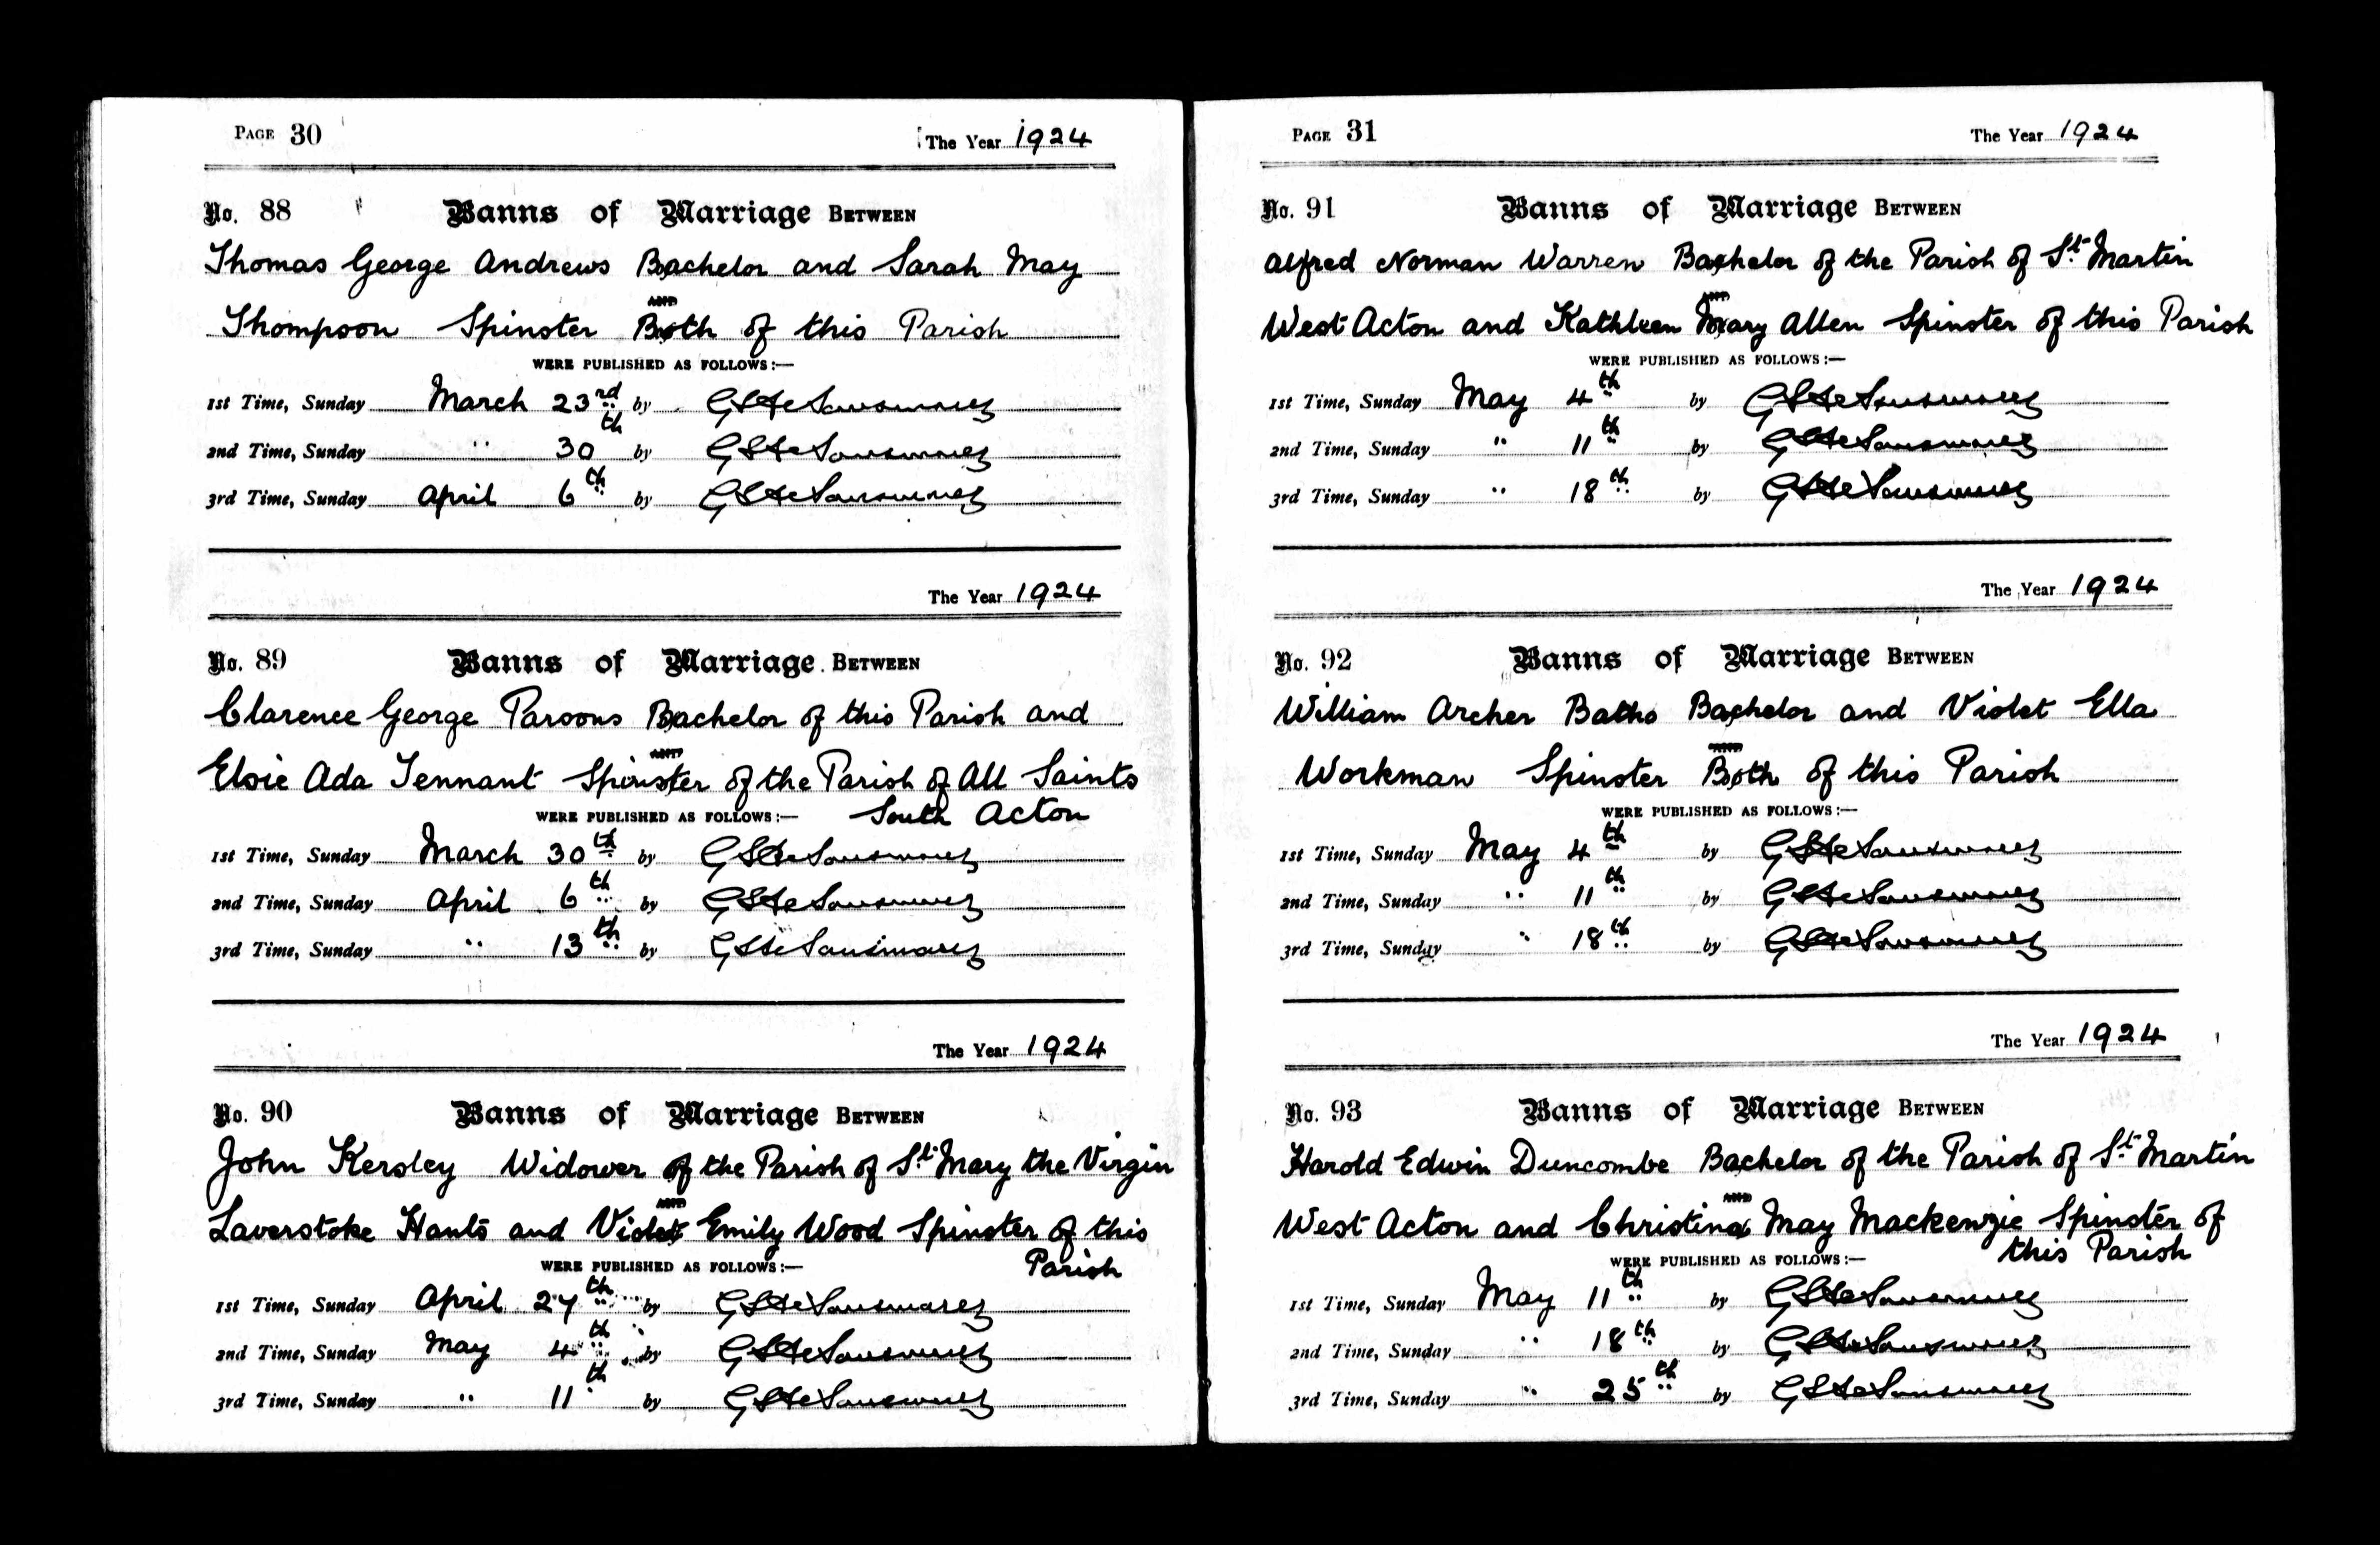 PAGE 30 The Year 1924
No. 88 Banns of Marriage BETWEEN
Thomas George Andrews Bachelor and Sarah May
AND
Thompson Spinster Both of this Parish
WERE PUBLISHED AS FOLLOWS:—
1st Time, Sunday March 23rd by GSdeSausmarez
2nd Time, Sunday " 30th by GSdeSausmarez
3rd Time, Sunday April 6th by GSdeSausmarez
The Year 1924
No. 89 Banns of Marriage BETWEEN
Clarence George Parsons Bachelor of this Parish and
AND
Elsie Ada Tennant Spinster of the Parish of All Saints
WERE PUBLISHED AS FOLLOWS:— South Acton
1st Time, Sunday March 30th by GSdeSausmarez
2nd Time, Sunday April 6th by GSdeSausmarez
3rd Time, Sunday " 13th by GSdeSausmarez
The Year 1924
No. 90 Banns of Marriage BETWEEN
John Kersley Widower of the Parish of St. Mary the Virgin
AND
Laverstoke Hants and Violet Emily Wood Spinster of this
WERE PUBLISHED AS FOLLOWS:— Parish
1st Time, Sunday April 27th by GSdeSausmarez
2nd Time, Sunday May 4th by GSdeSausmarez
3rd Time, Sunday " 11th by GSdeSausmarez
PAGE 31 The Year 1924
No. 91 Banns of Marriage BETWEEN
Alfred Norman Warren Bachelor of the Parish of St. Martin
AND
West Acton and Kathleen Mary Allen Spinster of this Parish
WERE PUBLISHED AS FOLLOWS:—
1st Time, Sunday May 4th by GSdeSausmarez
2nd Time, Sunday " 11th by GSdeSausmarez
3rd Time, Sunday " 18th by GSdeSausmarez
The Year 1924
No. 92 Banns of Marriage BETWEEN
William Archer Baths Bachelor and Violet Ella
AND
Workman Spinster Both of this Parish
WERE PUBLISHED AS FOLLOWS:—
1st Time, Sunday May 4th by GSdeSausmarez
2nd Time, Sunday " 11th by GSdeSausmarez
3rd Time, Sunday " 18th by GSdeSausmarez
The Year 1924
No. 93 Banns of Marriage BETWEEN
Harold Edwin Duncombe Bachelor of the Parish of St. Martin
AND
West Acton and Christina May Mackenzie Spinster of
WERE PUBLISHED AS FOLLOWS:— this Parish
1st Time, Sunday May 11th by GSdeSausmarez
2nd Time, Sunday " 18th by GSdeSausmarez
3rd Time, Sunday " 25th by GSdeSausmarez